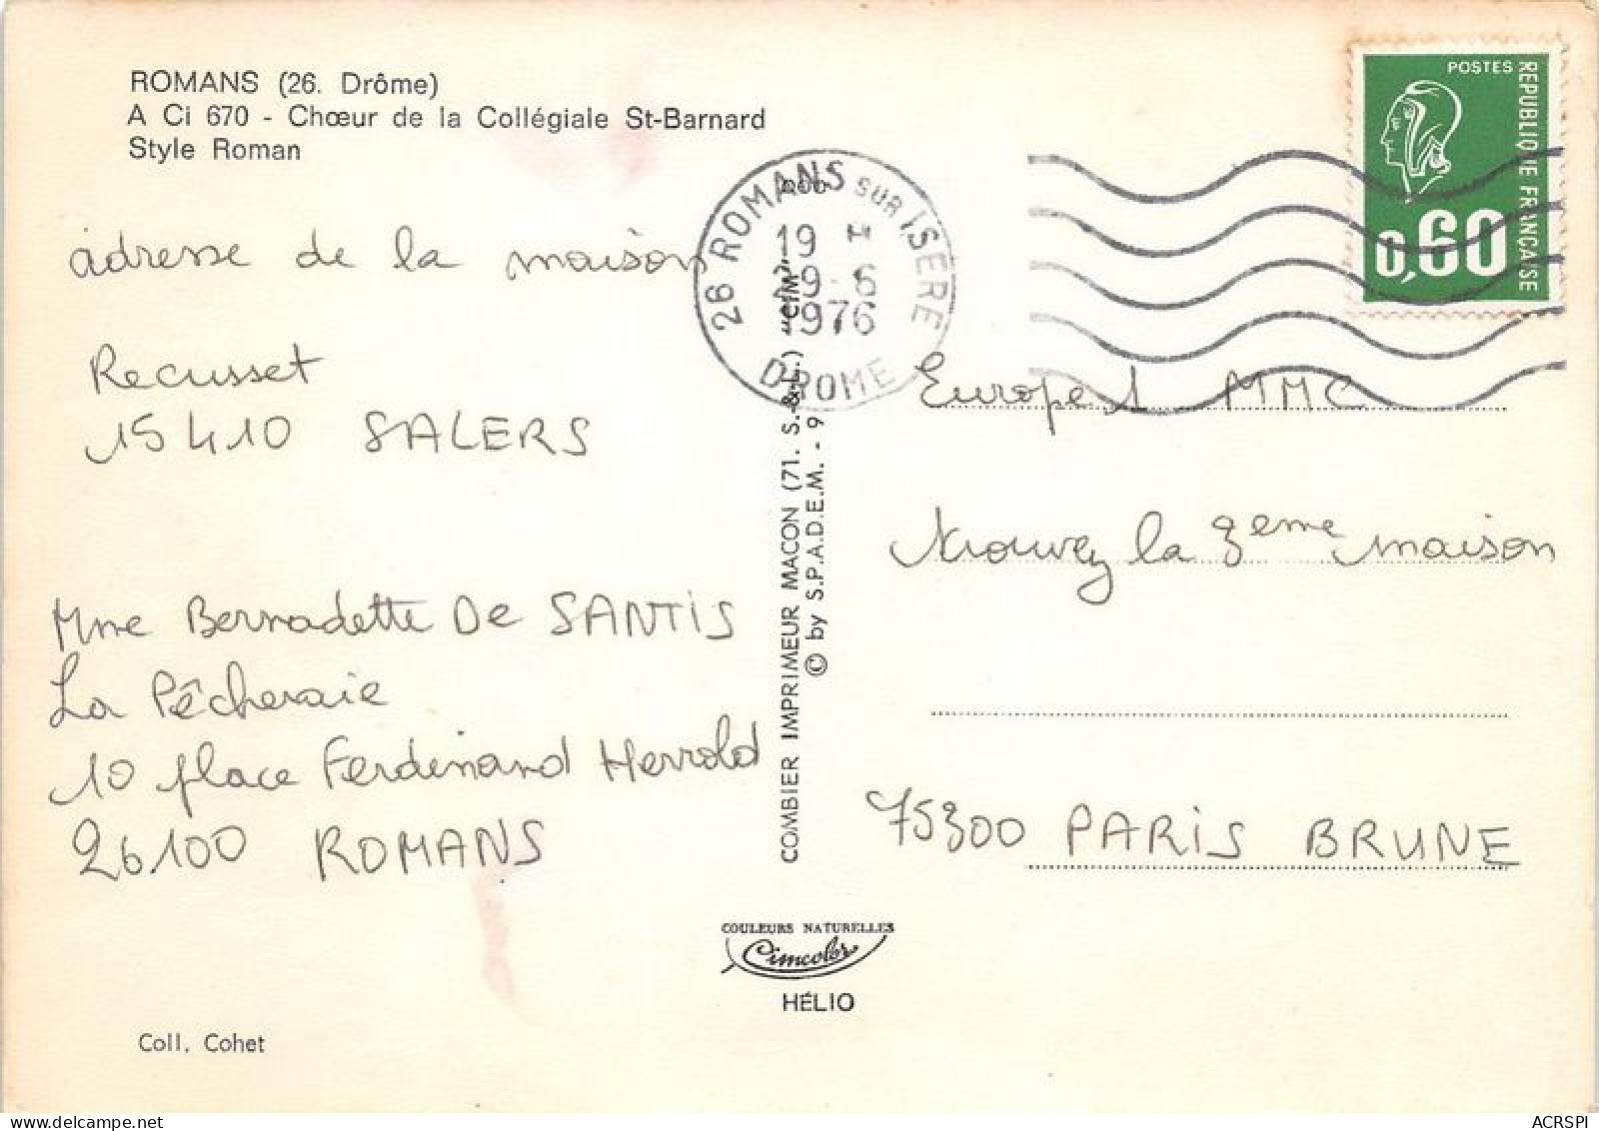 ROMANS (26. Drôme)
A Ci 670 - Chœur de la Collégiale St-Barnard
Style Roman
adresse de la maison
Recusset
15410 SALERS
Mme Bernadette De SANTIS
La Pêcheraie
10 place Ferdinand Herrold
26100 ROMANS
Coll. Cohet
26 ROMANS SUR ISERE
19 H
1976
DROME
COMBIER IMPRIMEUR MACON (71. S.-&-L.) "CIM"
© by S.P.A.D.E.M. - 9
COULEURS NATURELLES
Cimcolor
HÉLIO
POSTES
REPUBLIQUE FRANÇAISE
0,60
Europe 1 MMC
trouvez la 3eme maison
75300 PARIS BRUNE
ACRSPI